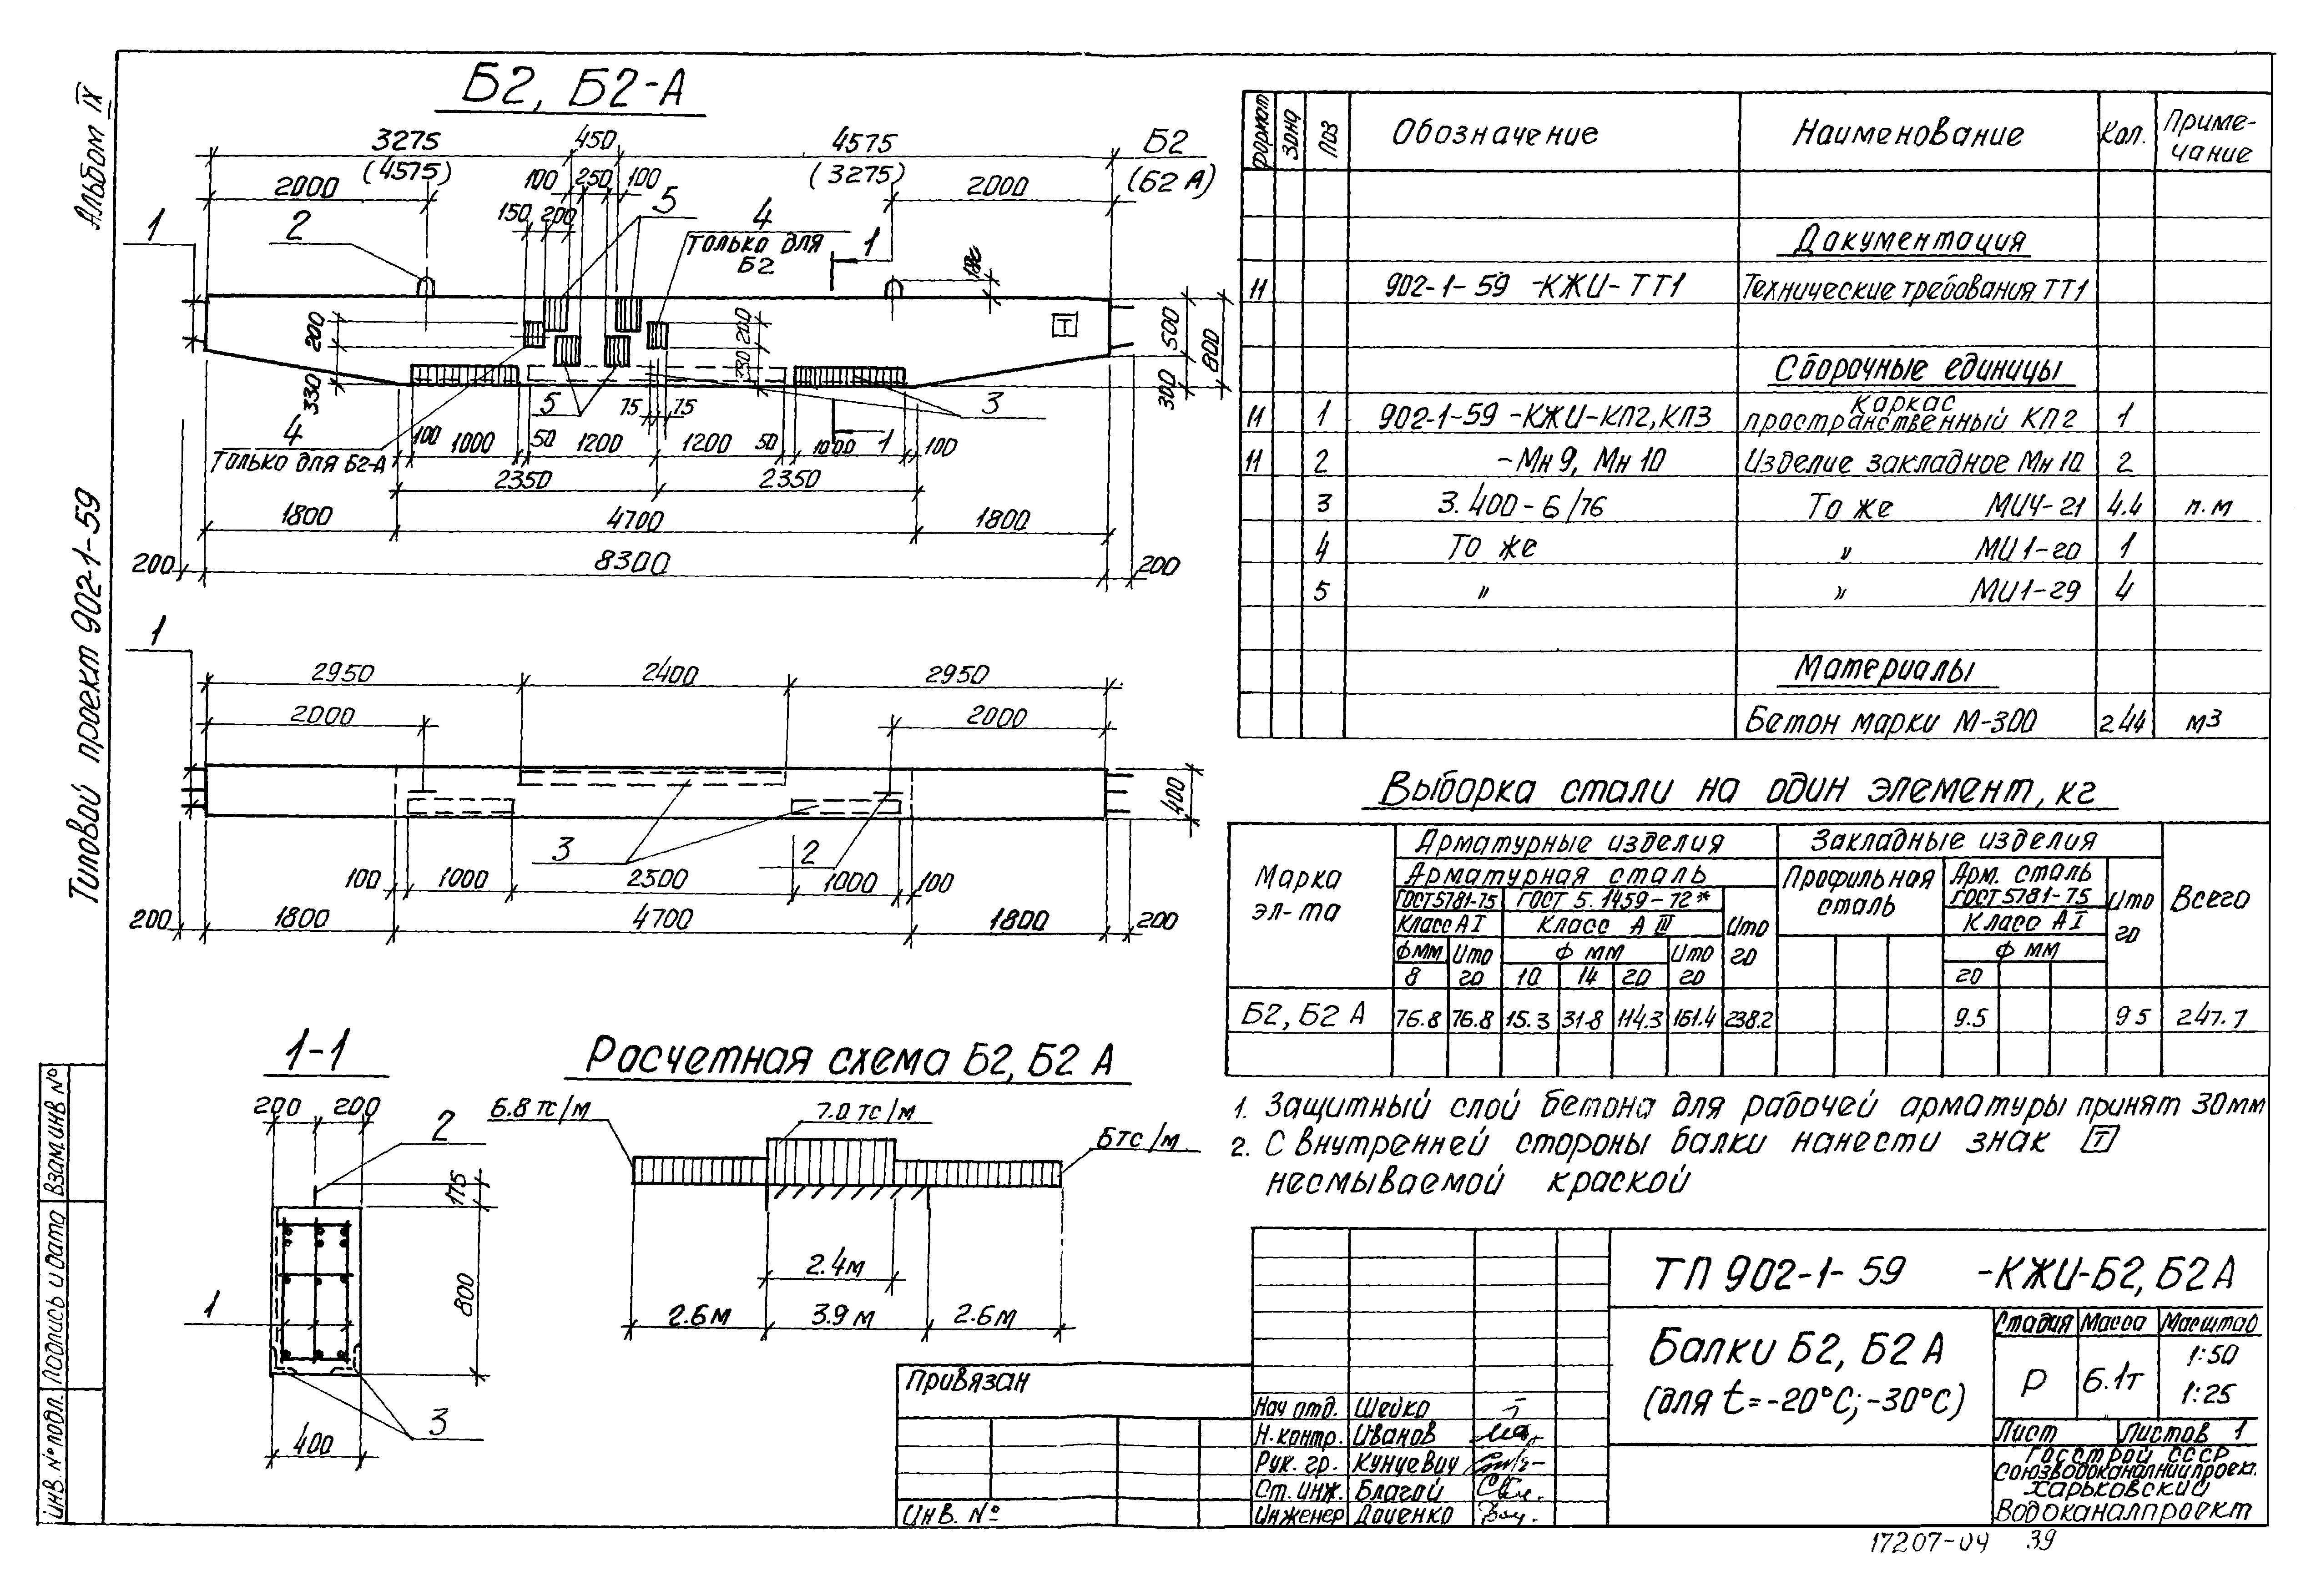 Альбом IX
Типовой проект 902-1-59
Б2, Б2-А
3275 450 4575 Б2
(4575) (3275) (Б2 А)
2000 100 250 100 2000
150 200 5 4
только для
Б2
1 2 1
200 330 200 330 500 300 800
Т
4
только для Б2-А
5 75 75 3
100 1000 50 1200 1200 50 1000 1 100
2350 2350
1800 4700 1800
200 8300 200
1
2950 2400 2950
2000 2000
400
3 2
100 1000 2500 1000 100
200 1800 4700 1800 200
1-1
200 200
2
175
800
1
3
400
Расчетная схема Б2, Б2 А
6.8 тс/м 7.0 тс/м 6тс/м
2.4м
2.6м 3.9 м 2.6м
Формат Зона Поз Обозначение Наименование Кол. Приме-
чание
Документация
11 902-1-59 -КЖИ-ТТ1 Технические требования ТТ1
Сборочные единицы
каркас
11 1 902-1-59 -КЖИ-КП2, КП3 пространственный КП2 1
11 2 -Мн 9, Мн 10 Изделие закладное Мн 10 2
3 3.400-6/76 То же МИ4-21 4.4 п.м
4 То же " МИ1-20 1
5 " " МИ1-29 4
Материалы
Бетон марки М-300 2.44 м3
Выборка стали на один элемент, кг
Марка
эл-та
Арматурные изделия Закладные изделия
Арматурная сталь Профильная
сталь Арм. сталь
ГОСТ 5781-75 ГОСТ 5.1459-72* Ито
го ГОСТ 5781-75 Ито
го Всего
Класс АI Класс А III Класс АI
Ф мм Ито
го Ф мм Ито
го Ф мм
8 10 14 20 20
Б2, Б2 А 76.8 76.8 15.3 31.8 114.3 161.4 238.2 9.5 9.5 247.7
1. Защитный слой бетона для рабочей арматуры принят 30мм
2. С внутренней стороны балки нанести знак Т
несмываемой краской
ТП 902-1-59 -КЖИ-Б2, Б2 А
Балки Б2, Б2 А
(для t=-20°С; -30°С)
Стадия Масса Масштаб
Р 6.1т 1:50
1:25
Лист Листов 1
Госстрой СССР
Союзводоканалниипроект
Харьковский
Водоканалпроект
Нач отд. Шейко
Н. контр. Иванов
Рук. гр. Кунцевич
Ст. инж. Благой
Инженер Доценко
Привязан
Инв. №
Взам.инв №
Подпись и дата
Инв. № подл.
17207-04 39